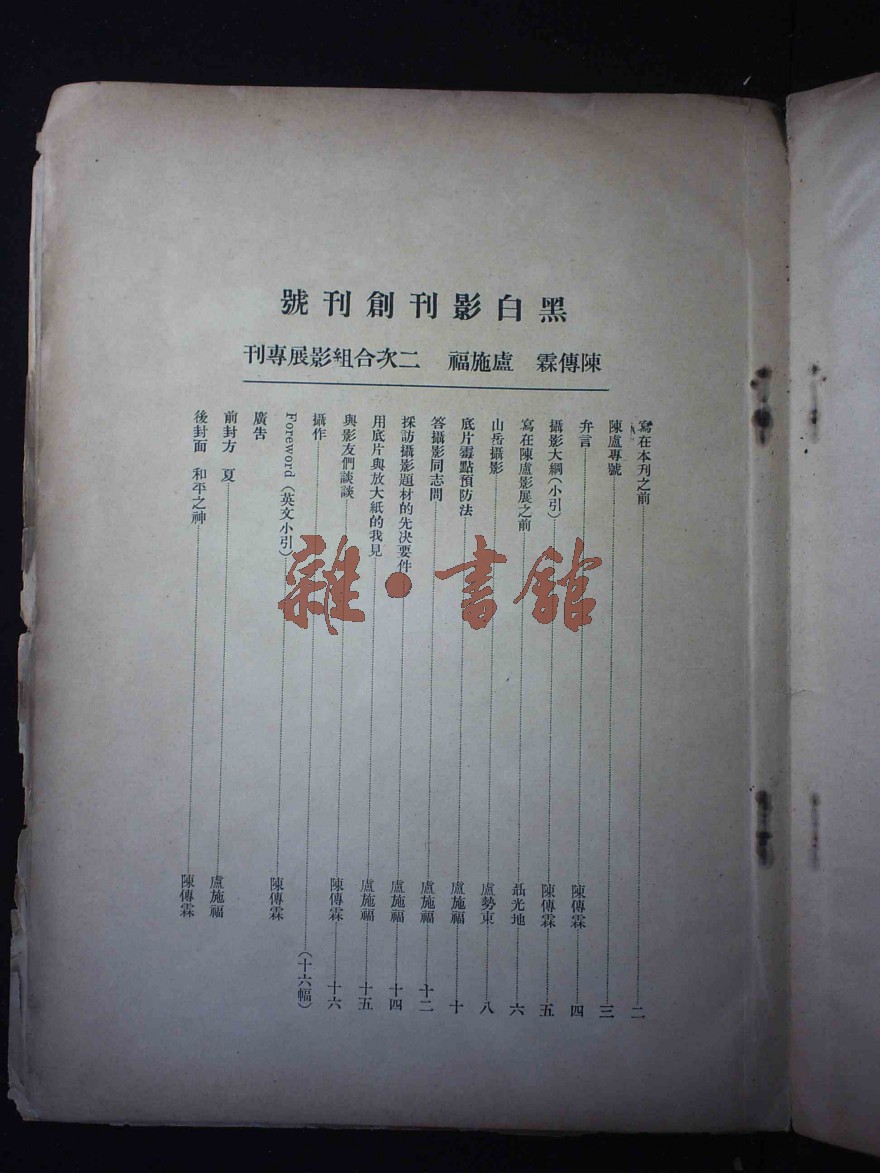 黑白影刊創刊號
陳傳霖 盧施福 二次合組影展專刊
寫在本刊之前 二
陳盧專號 三
弁言 陳傳霖 四
攝影大綱(小引) 陳傳霖 五
寫在陳盧影展之前 聶光地 六
山岳攝影 盧勢東 八
底片霉點預防法 盧施福 十
答攝影同志問 盧施福 十二
採訪攝影題材的先决要件 盧施福 十四
用底片與放大紙的我見 盧施福 十五
與影友們談談 陳傳霖 十六
攝作 (十六幅)
Foreword (英文小引) 陳傳霖
廣告
前封方 夏 盧施福
後封面 和平之神 陳傳霖
雜·書館